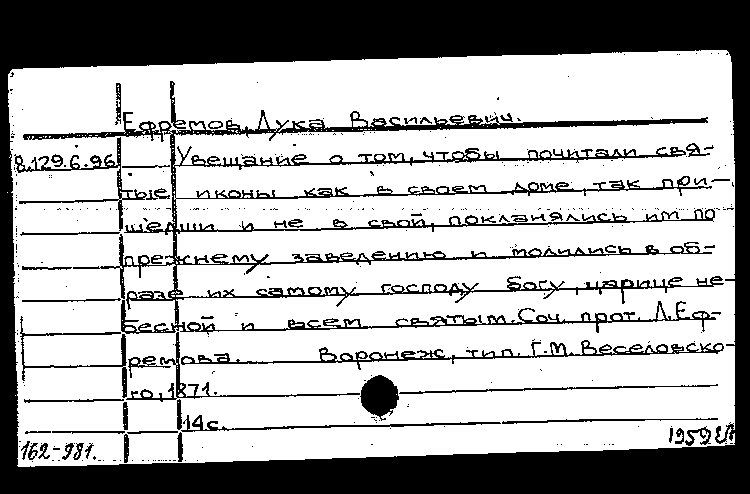 Ефремов, Лука Васильевич.
8.129.6.96 Увещание о том, чтобы почитали свя-
тые иконы как в своем доме, так при-
шедши и не в свой, покланялись им по
прежнему заведению и молились в об-
разе их самому господу богу, царице не-
бесной и всем святым. Соч. прот. Л. Еф-
ремова. Воронеж, тип. Г.М. Веселовско-
го, 1871.
14 с.
162-981. 1959